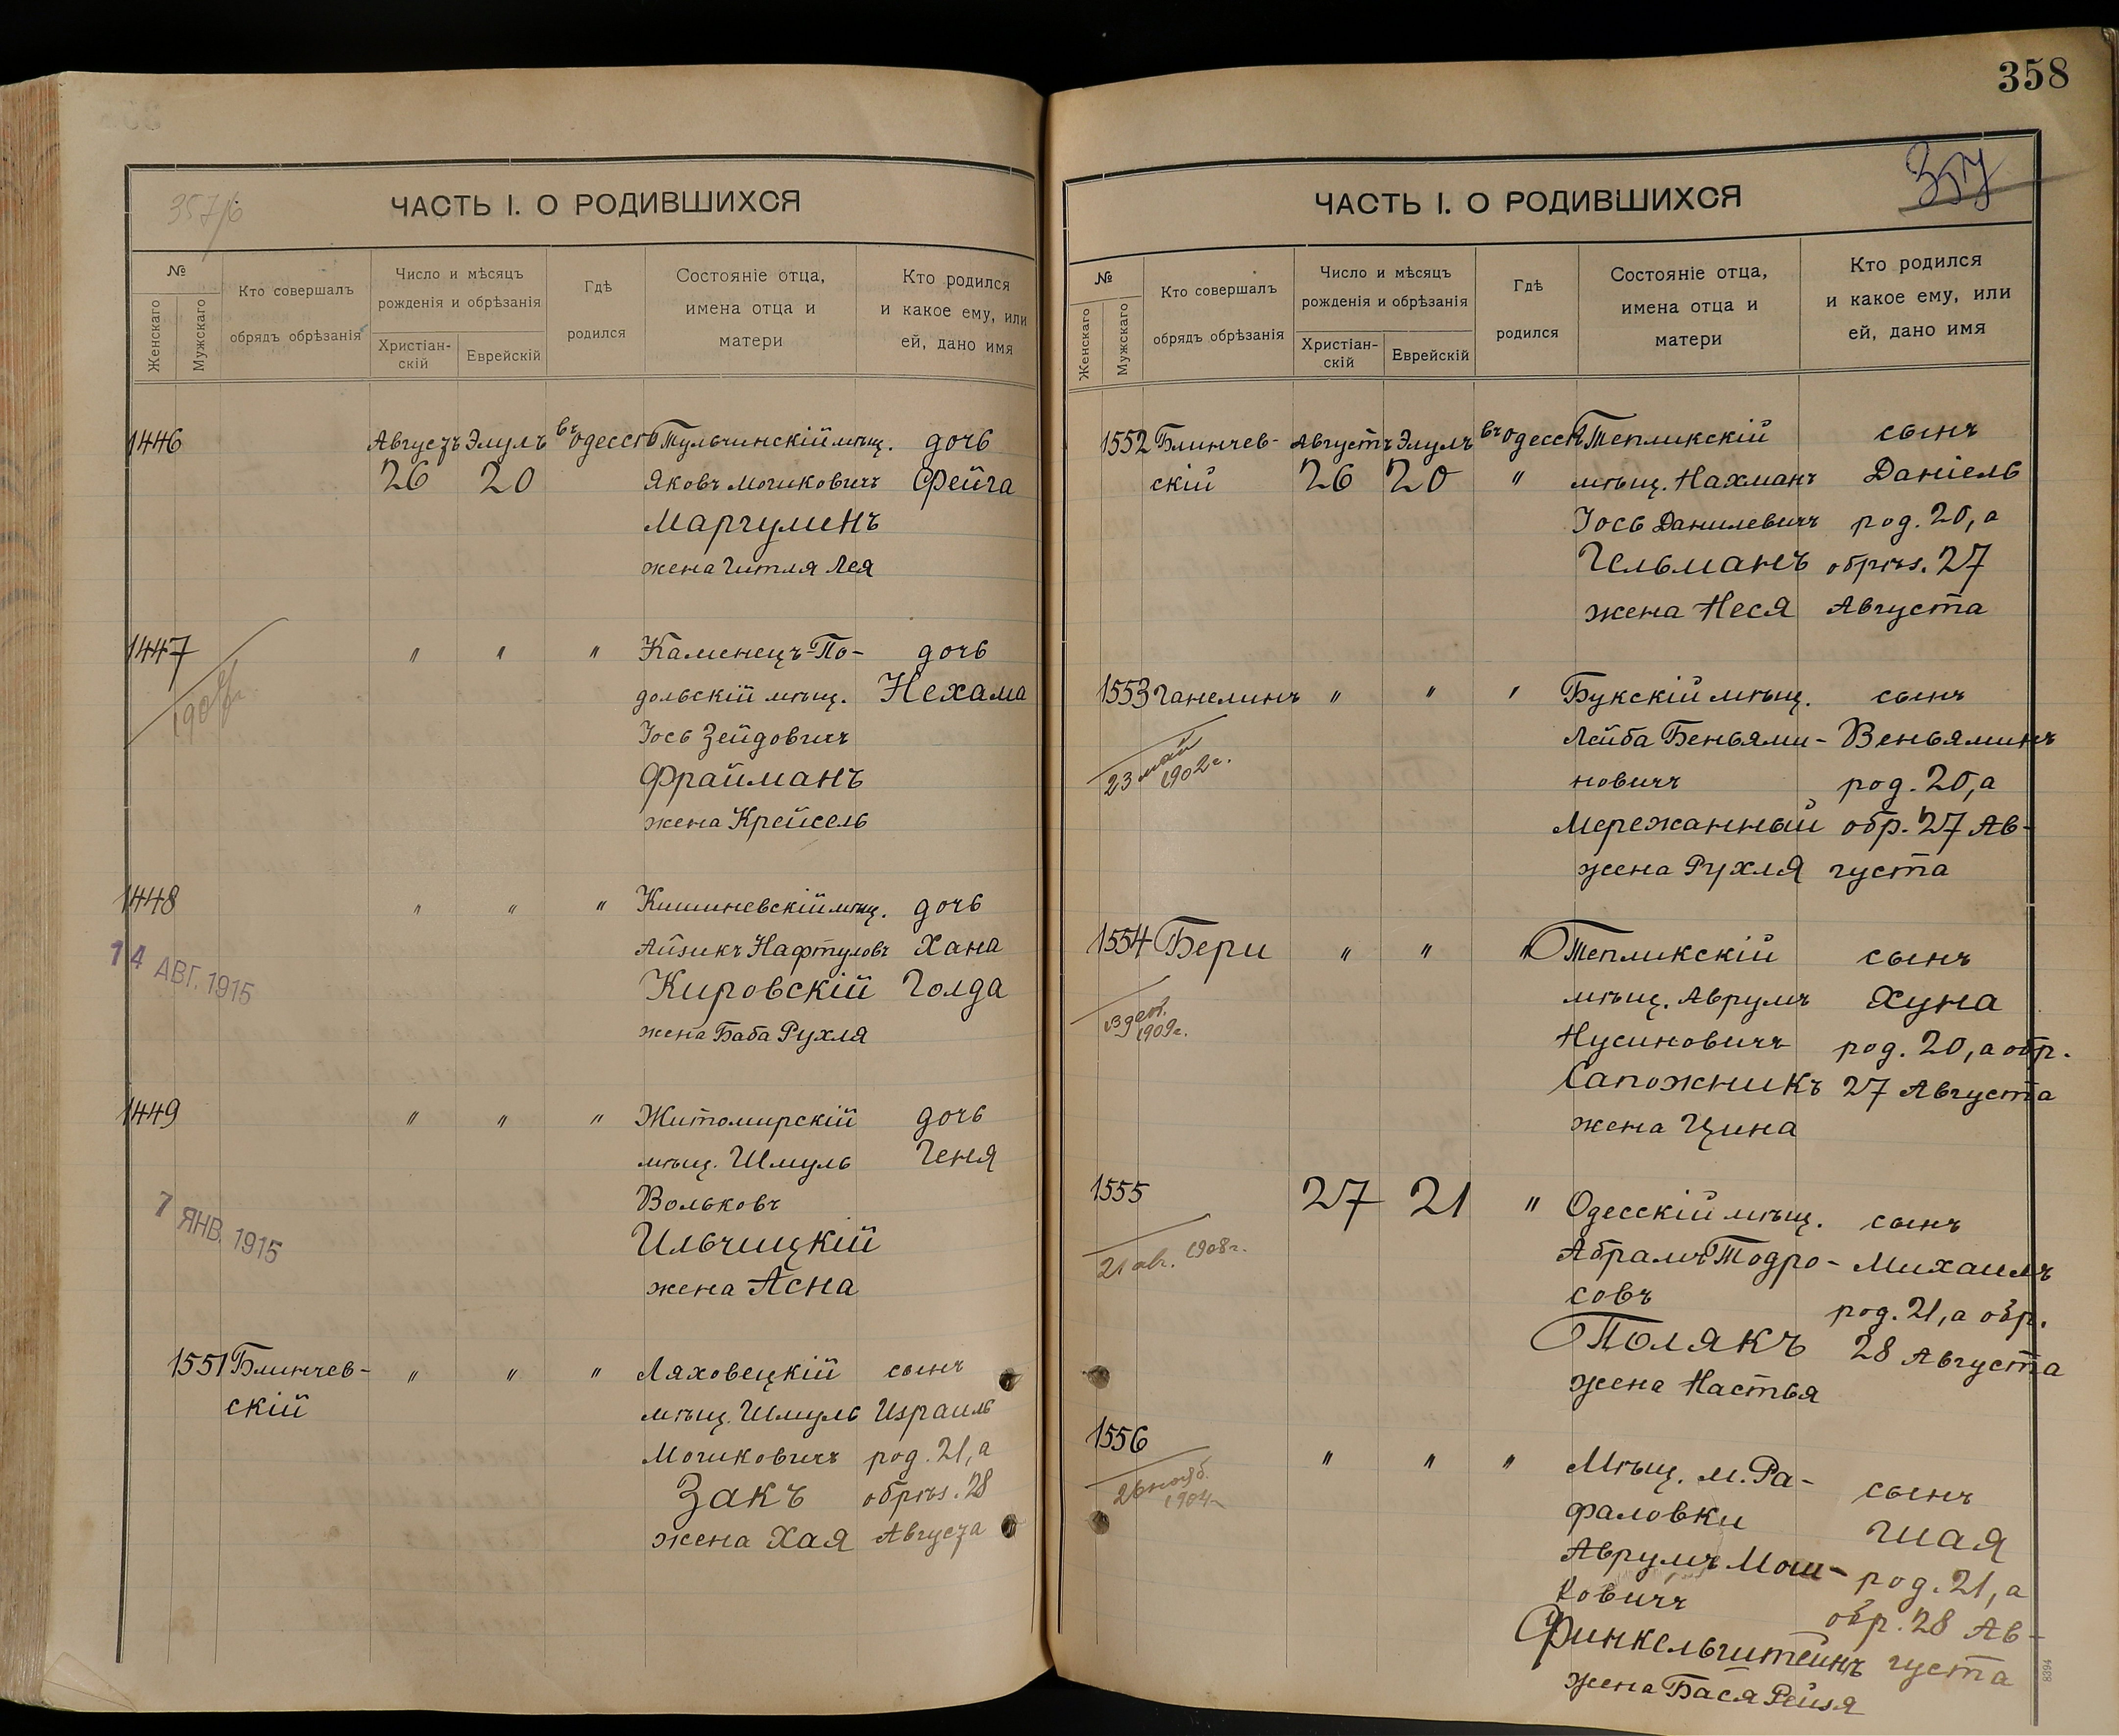 358
357
357/б
ЧАСТЬ I. О РОДИВШИХСЯ
№
Женскаго
Мужскаго
Кто совершалъ
обрядъ обрѣзанія
Число и мѣсяцъ
рожденія и обрѣзанія
Христіан-
скій
Еврейскій
Гдѣ
родился
Состояніе отца,
имена отца и
матери
Кто родился
и какое ему, или
ей, дано имя
1446 Августъ Элулъ въ Одессѣ Тульчинскій мѣщ. дочь
26 20 Яковъ Мошковичъ Фейга
Маргулинъ
жена Гитля Лея
1447 " " " Каменецъ-По- дочь
дольскій мѣщ. Нехама
Іось Зейдовичъ
Фрайманъ
жена Крейсель
1448 " " " Кишиневскій мѣщ. дочь
Айзикъ Нафтуловъ Хана
14 АВГ. 1915
Кировскій Голда
жена Баба Рухля
1449 " " " Житомирскій дочь
мѣщ. Шмуль Геня
Вольковъ
7 ЯНВ. 1915
Ильчицкій
жена Асна
1551 Блинчев- " " " Ляховецкій сынъ
скій мѣщ. Шмуль Израиль
Мошковичъ род. 21, а
Закъ обрѣз. 28
жена Хая Августа
ЧАСТЬ I. О РОДИВШИХСЯ
№
Женскаго
Мужскаго
Кто совершалъ
обрядъ обрѣзанія
Число и мѣсяцъ
рожденія и обрѣзанія
Христіан-
скій
Еврейскій
Гдѣ
родился
Состояніе отца,
имена отца и
матери
Кто родился
и какое ему, или
ей, дано имя
1552 Блинчев- Августъ Элулъ въ Одессѣ Тепликскій сынъ
скій 26 20 " мѣщ. Нахманъ Даніель
Іось Данилевичъ род. 20, а
Гельманъ обрѣз. 27
жена Неся Августа
1553 Ганелинъ " " " Букскій мѣщ. сынъ
Лейба Беньями- Веньяминъ
23 май
1902 г.
новичъ род. 20, а
Мережанный обр. 27 Ав-
жена Рухля густа
1554 Бери " " " Тепликскій сынъ
мѣщ. Аврумъ Хуна
1909 г.
Нусиновичъ род. 20, а обр.
Сапожникъ 27 Августа
жена Цина
1555 27 21 " Одесскій мѣщ. сынъ
21 авг. 1908 г.
Абрамъ Тодро- Михаилъ
совъ род. 21, а обр.
Полякъ 28 Августа
жена Настья
1556 " " " Мѣщ. м. Ра- сынъ
26 нояб.
1904
фаловки Шая
Аврумъ Мош- род. 21, а
ковичъ обр. 28 Ав-
Финкельштейнъ густа
жена Бася Рейзя
8394